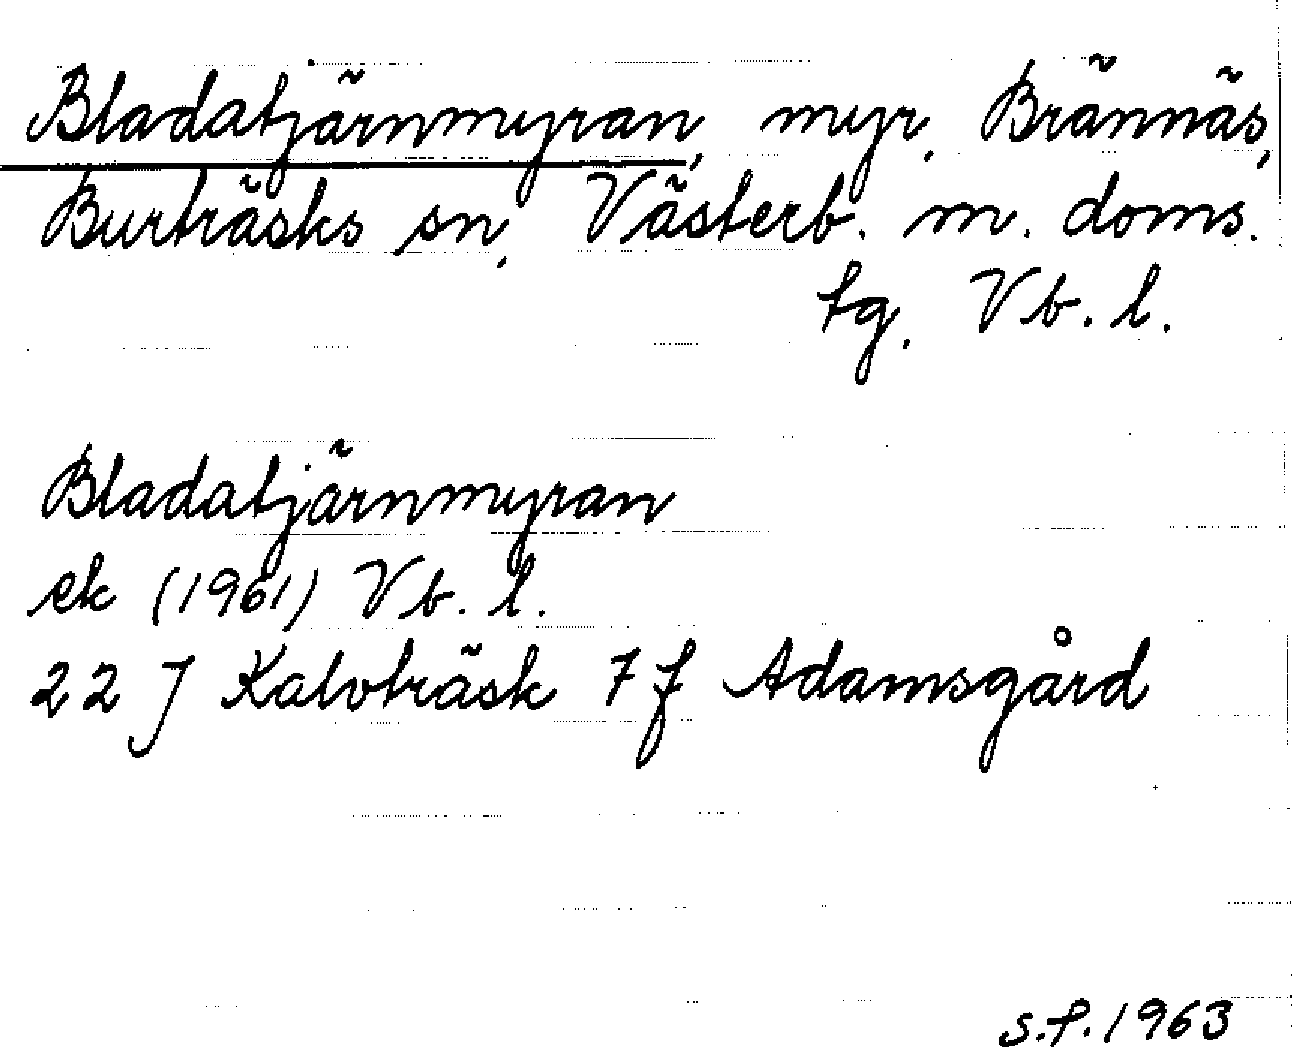 Bladatjärnmyran, myr, Brännäs,
Burträsks sn, Västerb. m. doms.
tg, Vb. l.
Bladatjärnmyran
ek (1961) Vb. l.
22 J Kalvträsk 7 f Adamsgård
s.f. 1963